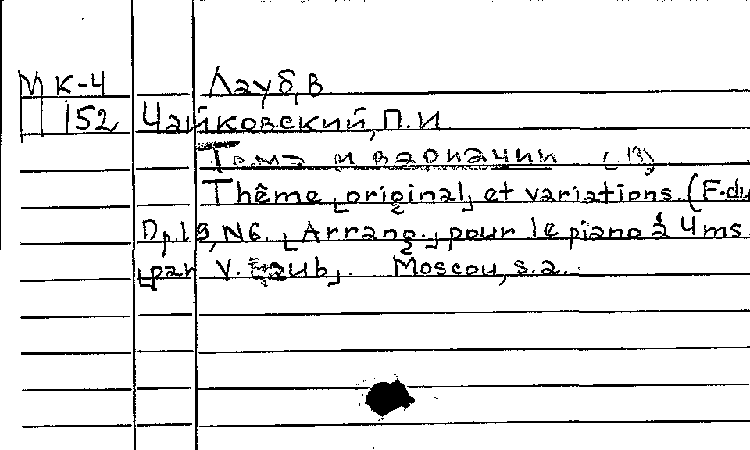 М К-4 Лауб, В.
II 152 Чайковский, П.И.
Тема и вариации
Thême [original] et variations. (F-du
Op.19, N6. [Arrang.] pour le piano à 4 ms.
[par V. Laub]. Moscou, s.a.